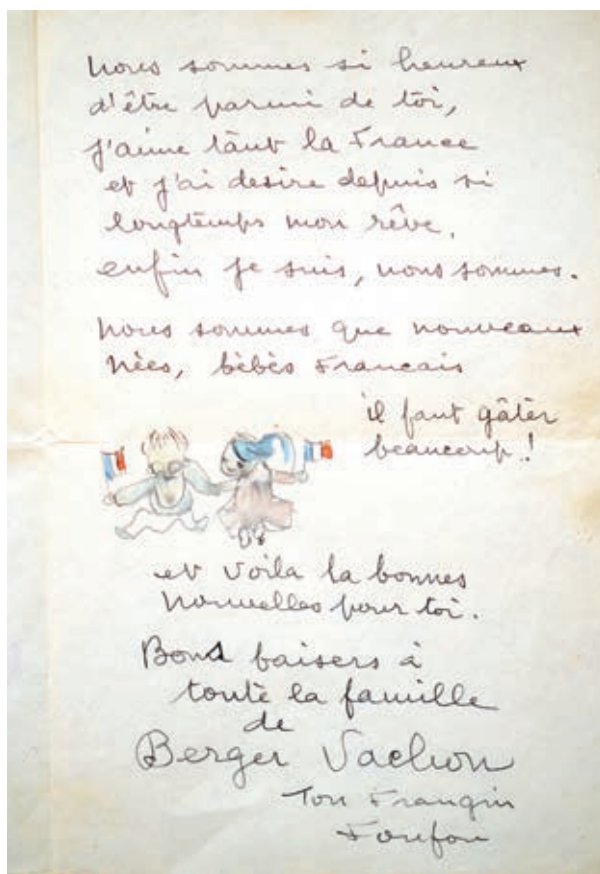 nous sommes si heureux
d'être parmi de toi,
j'aime tânt la France
et j'ai desire depuis si
longtemps mon rêve,
enfin je suis, nous sommes.
nous sommes que nouveaux
nèes, bèbès Francais
il faut gâtèr
beaucoup!
et voila la bonnes
nouvelles pour toi.
Bons baisers à
toute la famille
de
Berger Vachon
Ton Frangin
Foufou